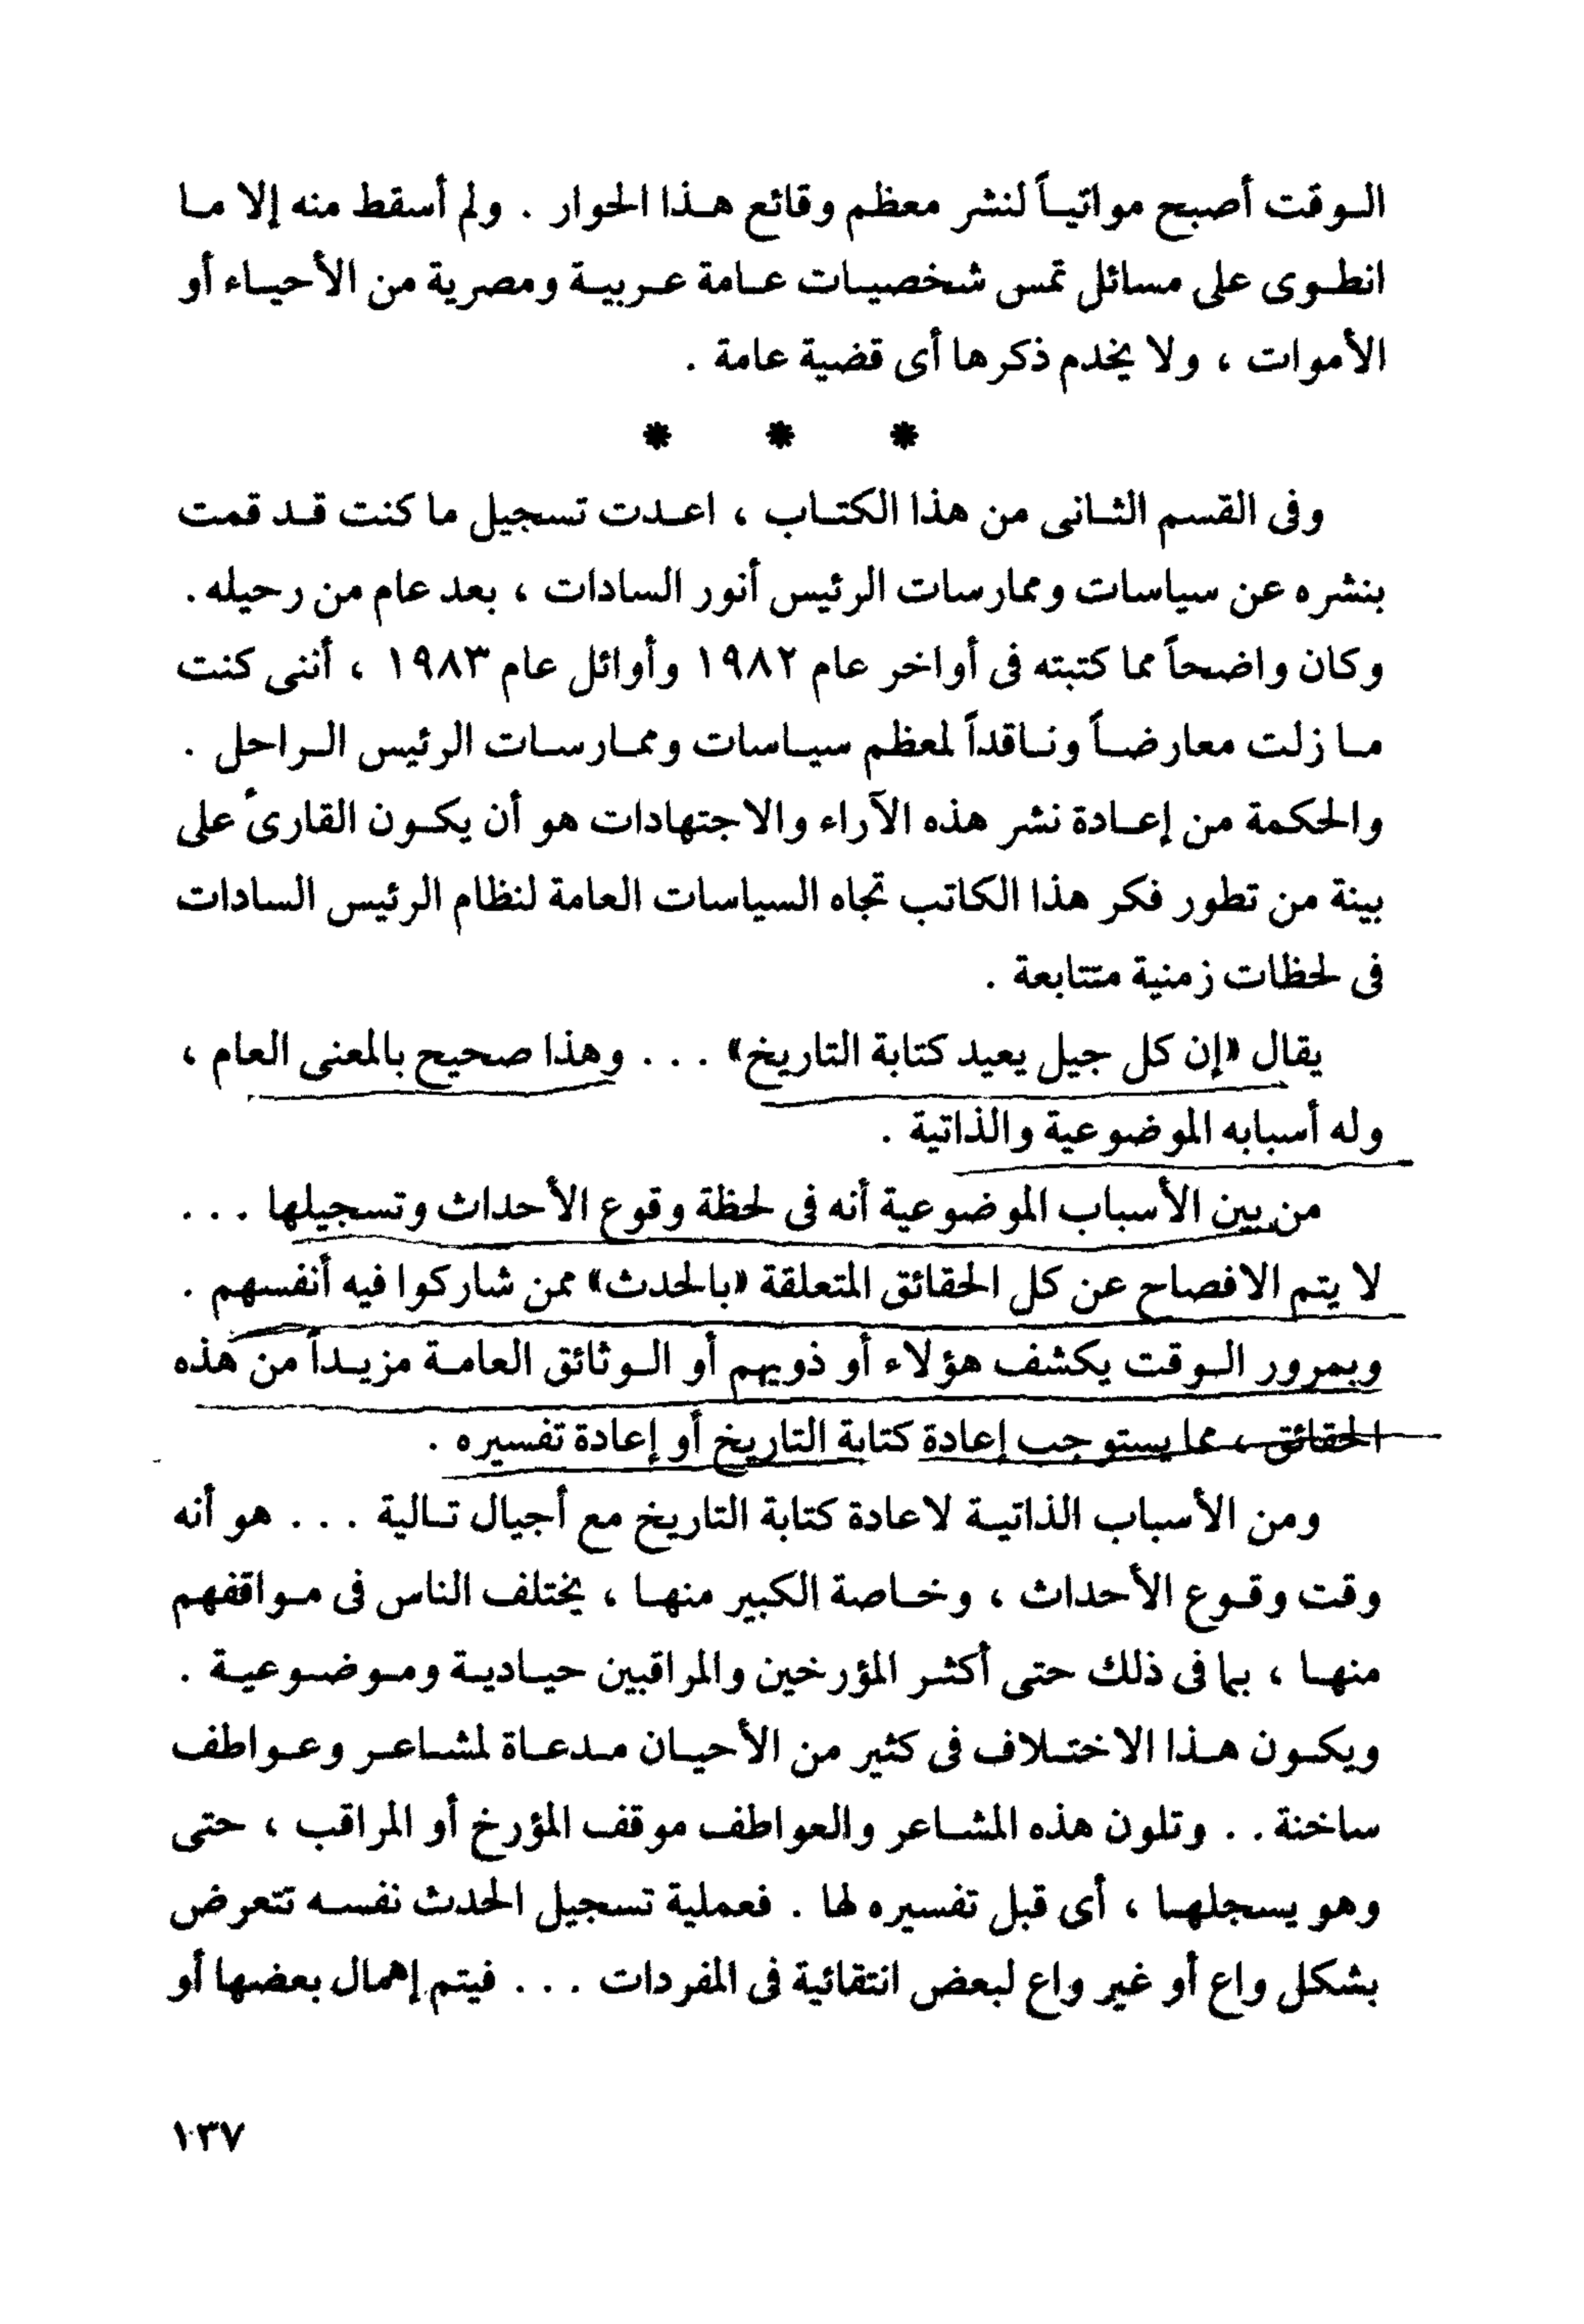 الوقت أصبح مواتياً لنشر معظم وقائع هذا الحوار . ولم أسقط منه إلا ما
انطوى على مسائل تمس شخصيات عامة عربية ومصرية من الأحياء أو
الأموات ، ولا يخدم ذكرها أى قضية عامة .
* * *
وفى القسم الثانى من هذا الكتاب ، اعدت تسجيل ما كنت قد قمت
بنشره عن سياسات وممارسات الرئيس أنور السادات ، بعد عام من رحيله .
وكان واضحاً مما كتبته فى أواخر عام ١٩٨٢ وأوائل عام ١٩٨٣ ، أننى كنت
ما زلت معارضاً وناقداً لمعظم سياسات وممارسات الرئيس الراحل .
والحكمة من إعادة نشر هذه الآراء والاجتهادات هو أن يكون القارئ على
بينة من تطور فكر هذا الكاتب تجاه السياسات العامة لنظام الرئيس السادات
فى لحظات زمنية متتابعة .
يقال «إن كل جيل يعيد كتابة التاريخ» . . . وهذا صحيح بالمعنى العام ،
وله أسبابه الموضوعية والذاتية .
من بين الأسباب الموضوعية أنه فى لحظة وقوع الأحداث وتسجيلها . . .
لا يتم الافصاح عن كل الحقائق المتعلقة «بالحدث» ممن شاركوا فيه أنفسهم .
وبمرور الوقت يكشف هؤلاء أو ذويهم أو الوثائق العامة مزيداً من هذه
الحقائق ، مما يستوجب إعادة كتابة التاريخ أو إعادة تفسيره .
ومن الأسباب الذاتية لاعادة كتابة التاريخ مع أجيال تالية . . . هو أنه
وقت وقوع الأحداث ، وخاصة الكبير منها ، يختلف الناس فى مواقفهم
منها ، بما فى ذلك حتى أكثر المؤرخين والمراقبين حيادية وموضوعية .
ويكون هذا الاختلاف فى كثير من الأحيان مدعاة لمشاعر وعواطف
ساخنة . . وتلون هذه المشاعر والعواطف موقف المؤرخ أو المراقب ، حتى
وهو يسجلها ، أى قبل تفسيره لها . فعملية تسجيل الحدث نفسه تتعرض
بشكل واع أو غير واع لبعض انتقائية فى المفردات . . . فيتم إهمال بعضها أو
١٣٧